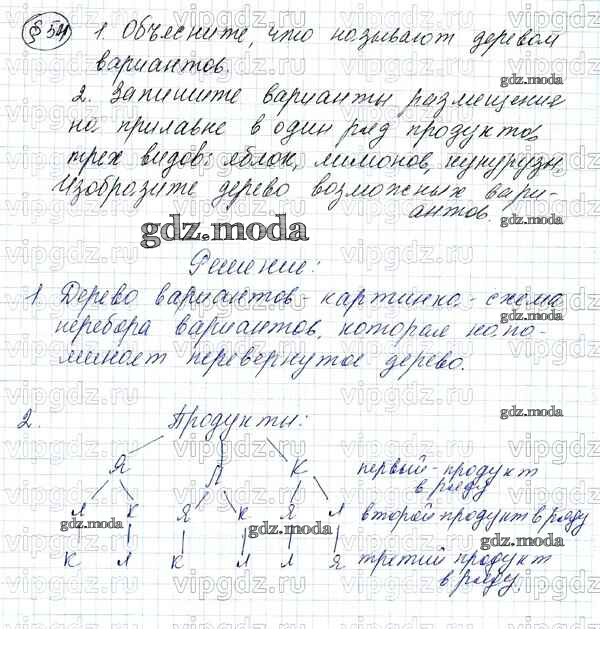 § 54
1. Объясните, что называют деревом
вариантов.
2. Запишите варианты размещение
на прилавке в один ряд продуктов
трех видов: яблок, лимонов, кукурузы.
Изобразите дерево возможных вари-
антов.
gdz.moda
Решение:
1 Дерево вариантов - картинка - схема
перебора вариантов, которая напо-
минает перевернутое дерево.
2. Продукты:
Я Л К первый - продукт
в ряду
Л К Я К Я Л второй продукт в ряду
К Л К Я Л Я третий продукт
в ряду